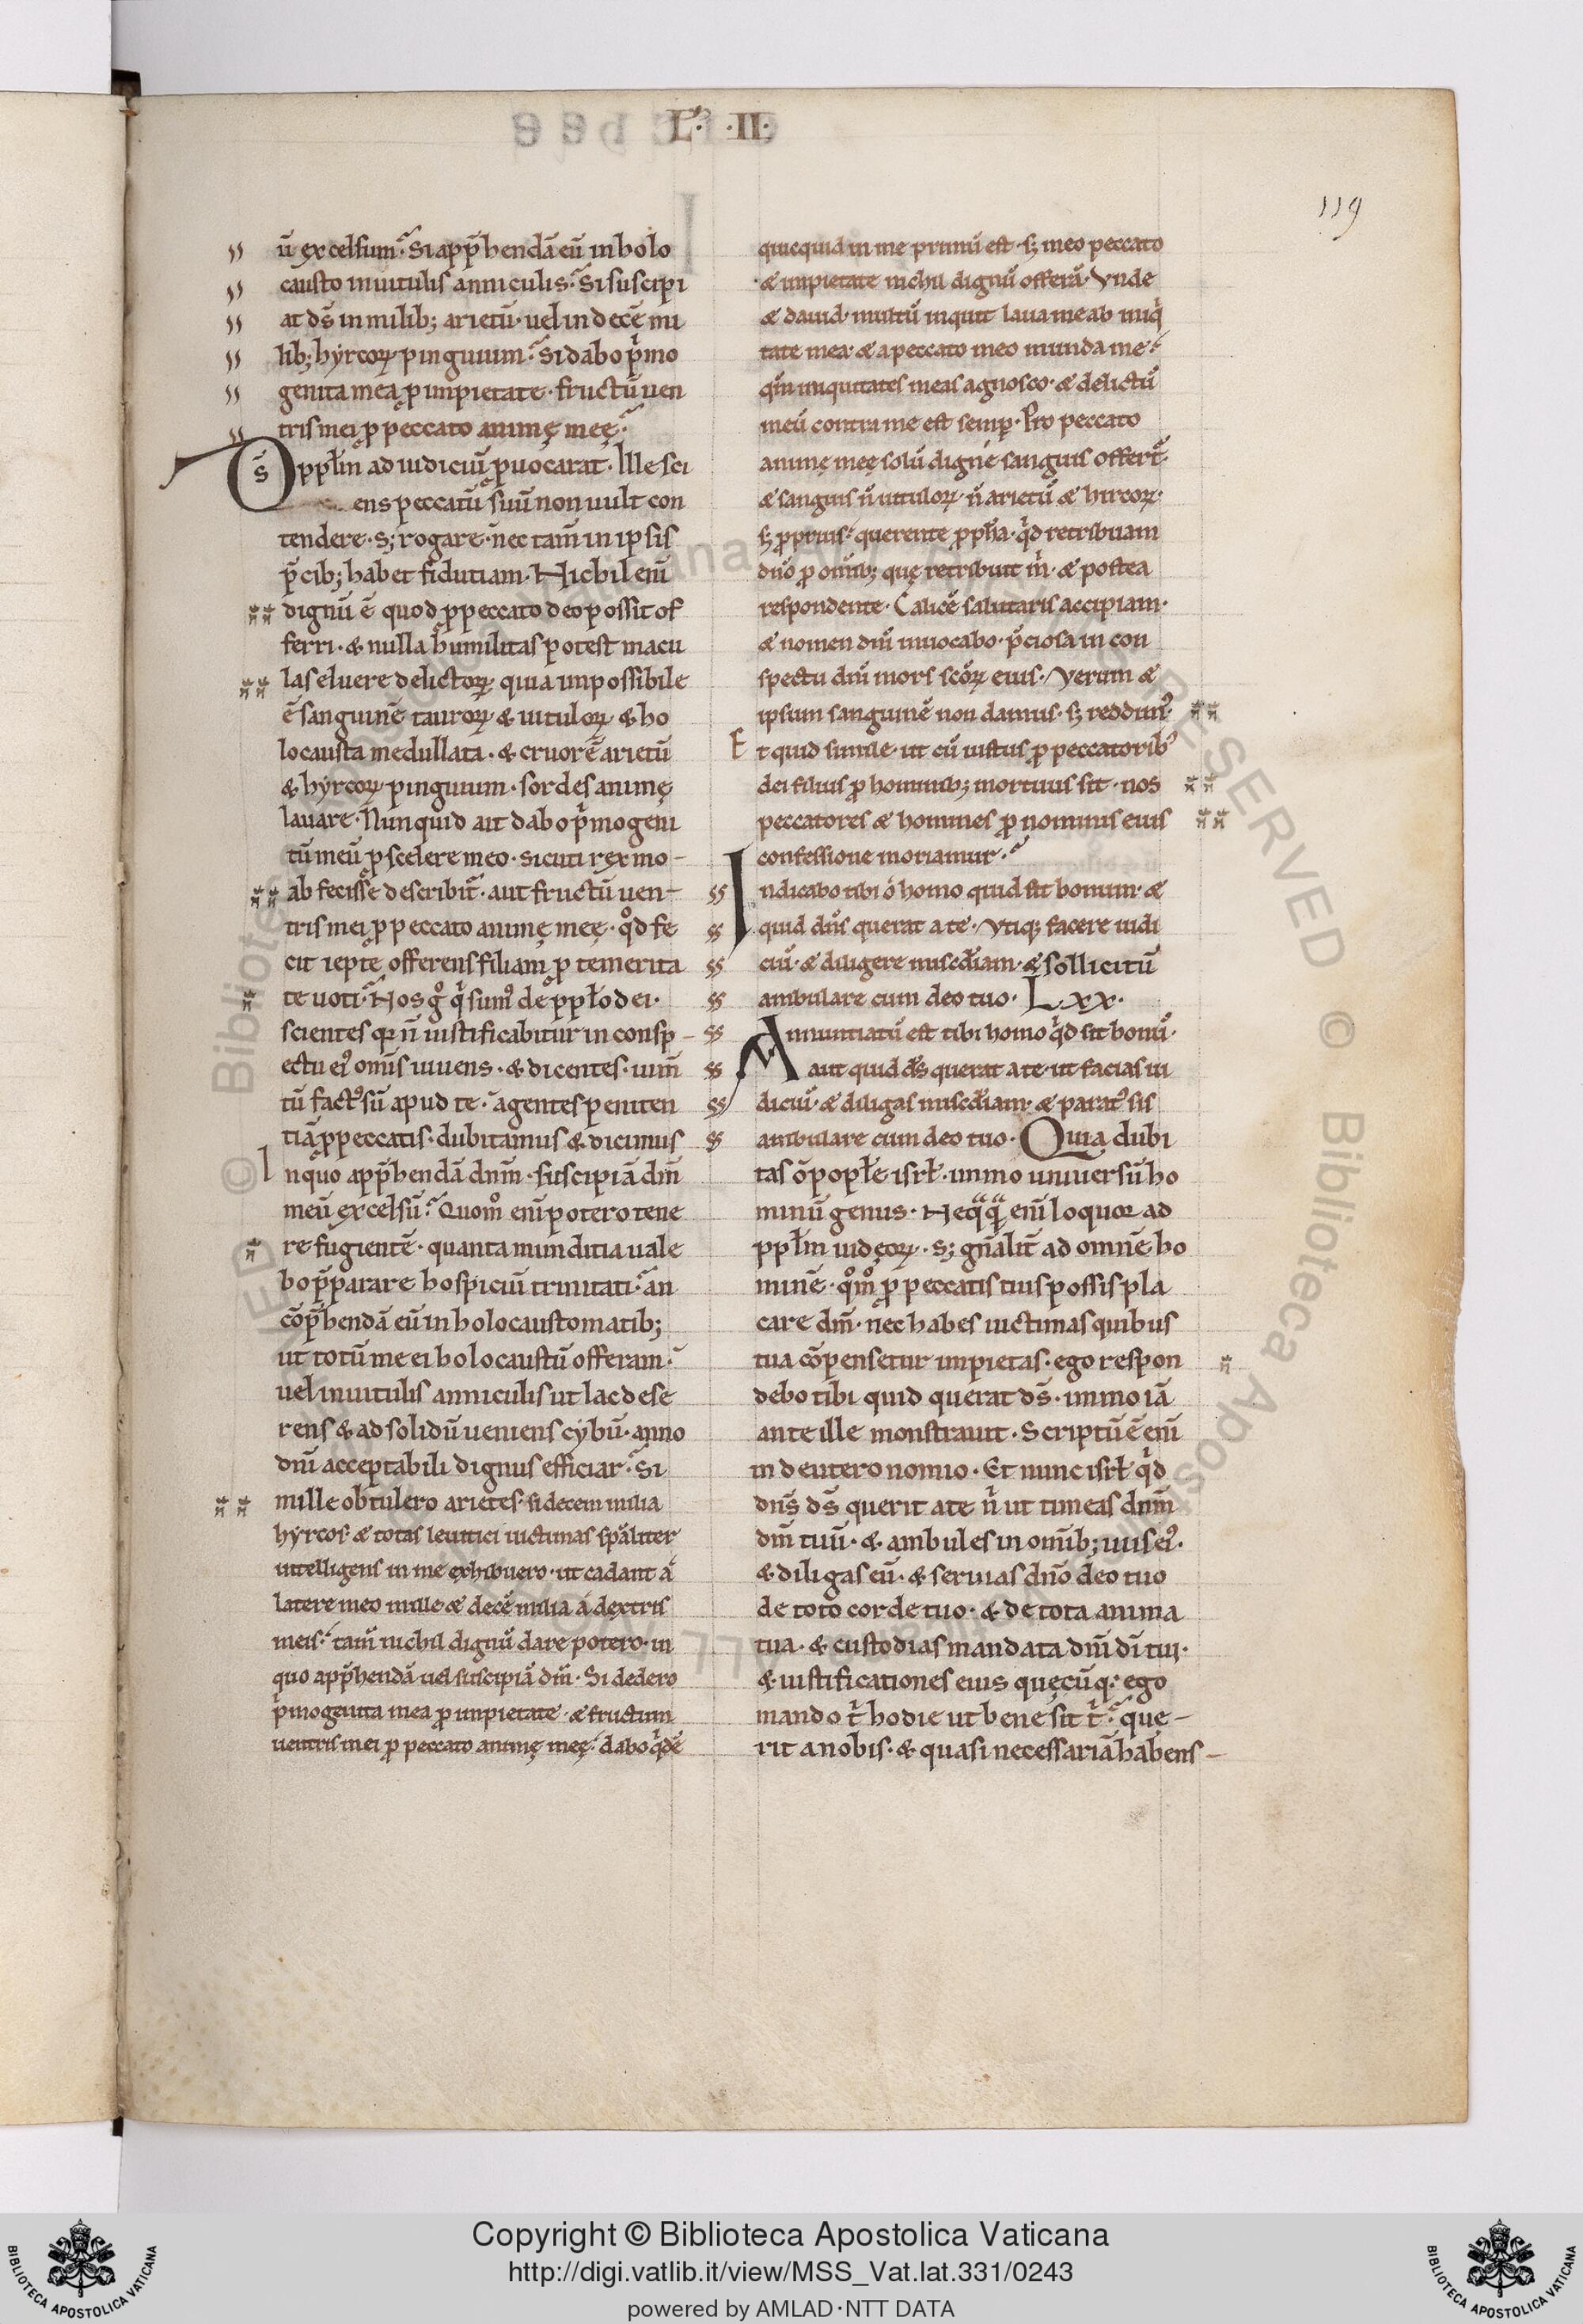 L̃. ·II·
119
ū excelsum. Si app̄hendā eū in holo
causto in uitulis anniculis. Si suscipi
at ds̄ in milib; arietū. uel in decē mi
lib; hyrcoꝝ pinguium. Si dabo pͥmo
genita mea ꝓ impietate. fructū uen
tris mei ꝓ peccato animę meę.
Ds̄ ppl̄m ad iudiciū ꝓuocarat. Ille sci
ens peccatū suū non uult con
tendere. s; rogare. nec tam̄ in ipsis
p̄cib; habet fidutiam. Nichil eni̅
dignū ē quod ꝓ peccato deo possit of
ferri. & nulla humilitas potest macu
las eluere delictoꝝ quia impossibile
ē sanguinē tauroꝝ & uituloꝝ & ho
locausta medullata. & cruorē arietū
& hyrcoꝝ pinguium. sordes animę
lauare. Nunquid ait dabo pͥmogeni
tū meū ꝓ scelere meo. sicuti rex mo-
ab fecisse describit̄. aut fructū uen-
tris mei ꝓ peccato animę meę. qͦd fe
cit iepte offerens filiam ꝓ temerita
te uoti. Nos gͦ qͥ sumꝰ de ꝓplo dei.
scientes qꝛ n̄ iustificabitur in consp-
ectu eiꝰ omīs uiuens. & dicentes. ium̄
tū factꝰ sū apud te. agentes peniten
tiā ꝓ peccatis. dubitamus & dicimus
In quo app̄hendā dnm̄. suscipiā dm̄
meū excelsū. Quomͦ eni̅ potero tene
re fugientē. quanta munditia uale
bo p̄parare hospiciū trinitati. an
cōp̄hendā eū in holocaustomatib;
ut totū me ei holocaustū offeram.
uel in uitulis anniculis ut lac dese
rens & ad solidū ueniens cybū. anno
dni̅ acceptabili dignus efficiar. Si
mille obtulero arietes. si decem milia
hyrcos. æ totas leuitici uictimas spāliter
intelligens in me exhibuero. ut cadant a
latere meo mille æ decē milia a dextris
meis. tam̄ nichil dignū dare potero. in
quo app̄hendā uel suscipiā dm̄. Si dedero
pͥmogenita mea ꝓ impietate. æ fructum
uentris mei ꝓ peccato animę meę. dabo qͥdē
quicquid in me primū est. s; meo peccato
æ impietate nichil dignū offerā. Vnde
æ dauid. multū inquit laua me ab iniqͥ
tate mea. æ a peccato meo munda me.
qm̄ iniquitates meas agnosco. æ delictū
meū contra me est semꝑ. Pro peccato
animę meę solū digne sanguis offert̄.
æ sanguis n̄ uituloꝝ. n̄ arietū æ hircoꝝ.
s; ꝓprius. querente ꝓph̄a. qͥd retribuam
dn̄o ꝓ omīb; quę retribuit m̄. æ postea
respondente. Calicē salutaris accipiam.
æ nomen dni̅ inuocabo. p̄ciosa in con
spectu dni̅ mors scōꝝ eius. Verum æ
ipsum sanguinē non damus. s; reddimꝰ.
Et quid simile. ut cū iustus ꝓ peccatoribꝰ
dei filius ꝓ hominib; mortuus sit. nos
peccatores æ homines ꝓ nominis eius
confessione moriamur.
Indicabo tibi ó homo quid sit bonum. æ
quid dn̄s querat a te. Vtiq; facere iudi
ciū. æ diligere misc̄diam. æ sollicitū
ambulare cum deo tuo. LXX.
Annuntiatū est tibi homo qͥd sit bonū.
aut quid ds̄ querat a te. ut facias iu
diciū. æ diligas misc̄diam. æ paratꝰ sis
ambulare cum deo tuo. Quia dubi
tas ō popl̄e isrl̄. immo uniuersū ho
minū genus. Neqᵃqᵃ eni̅ loquor ad
ppl̄m iudęoꝝ. s; gn̄alit̄ ad omnē ho
minē. qͦmͦ ꝓ peccatis tuis possis pla
care dm̄. nec habes uictimas quibus
tua cōpensetur impietas. ego respon
debo tibi quid querat ds̄. immo iā
ante ille monstrauit. Scriptū ē eni̅
in deuteronomio. Et nunc isrl̄ qͥd
dn̄s ds̄ querit a te nͥ ut timeas dnm̄
dm̄ tuū. & ambules in omīb; uiis eiꝰ.
& diligas eū. & seruias dn̄o deo tuo
de toto corde tuo. & de tota anima
tua. & custodias mandata dni̅ di̅ tui.
& iustificationes eius quęcūq; ego
mando tͥ hodie ut bene sit tͥ. que-
rit a nobis. & quasi necessariā habens-
Copyright © Biblioteca Apostolica Vaticana
http://digi.vatlib.it/view/MSS_Vat.lat.331/0243
powered by AMLAD·NTT DATA